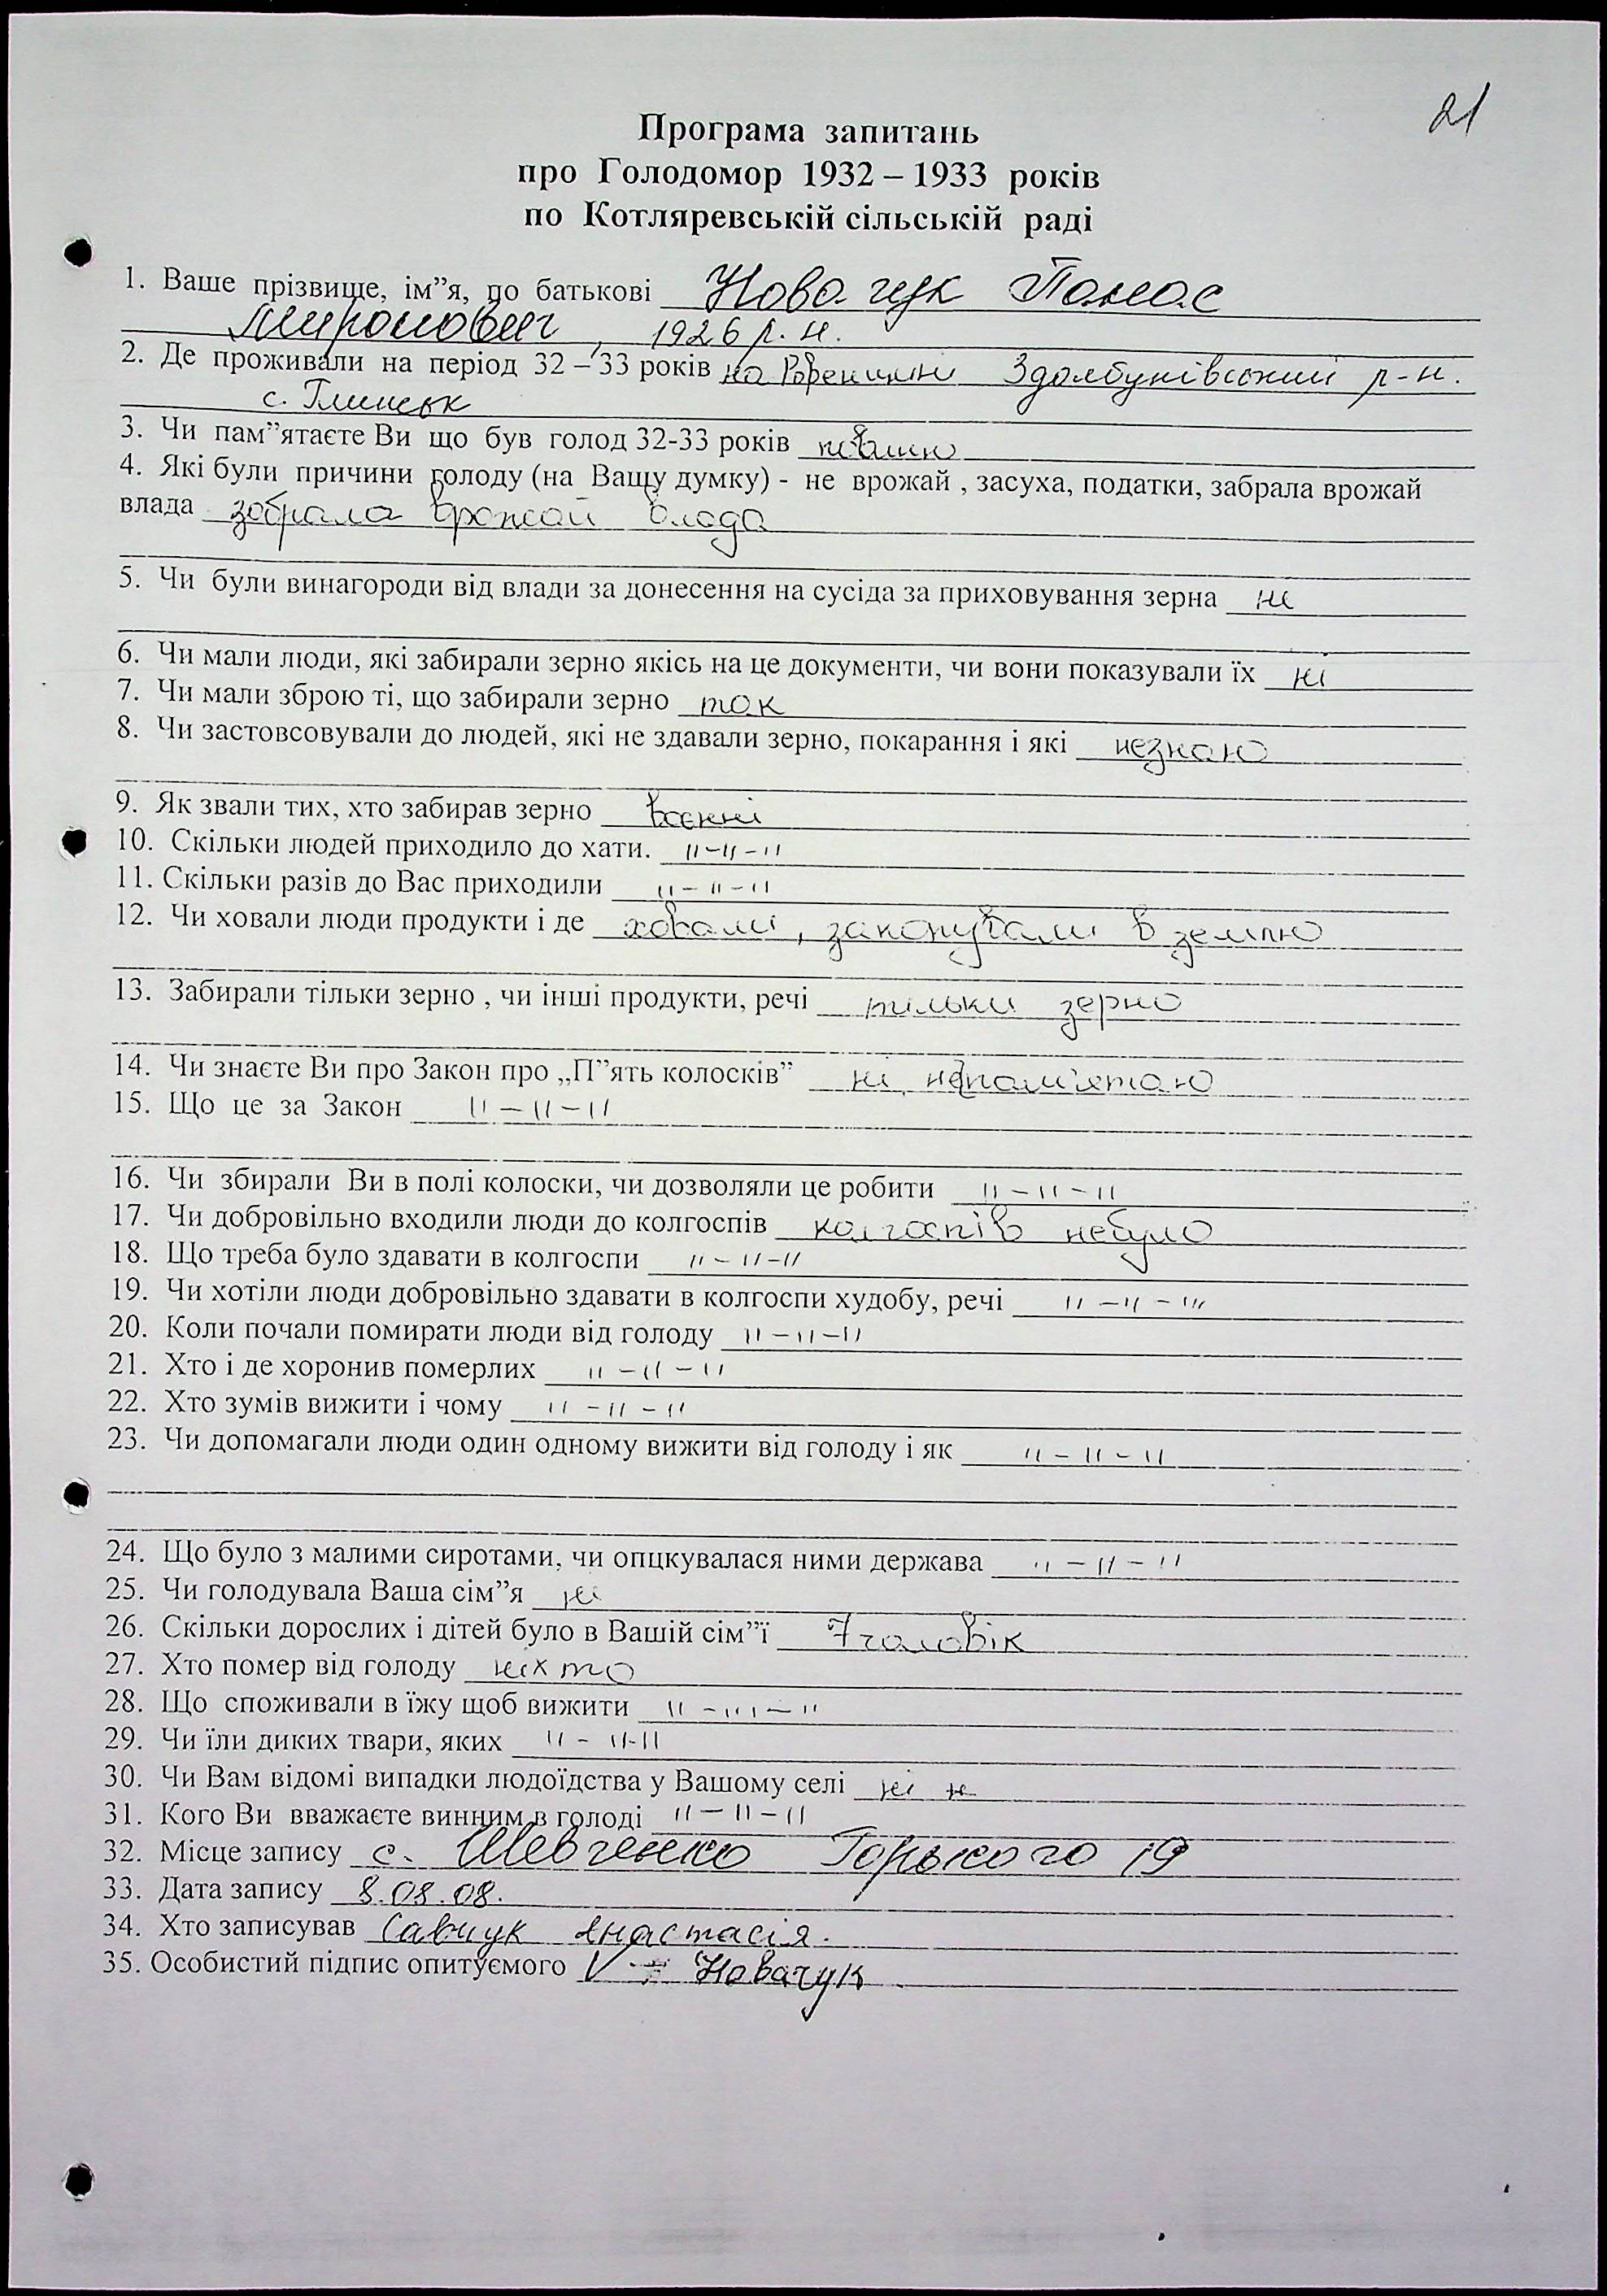 21
Програма запитань
про Голодомор 1932 – 1933 років
по Котляревській сільській раді
1. Ваше прізвище, ім”я, по батькові Новачук Панас
Миронович, 1926 р.н.
2. Де проживали на період 32 – 33 років на Ровенщині Здолбунівський р-н.
с. Глинськ
3. Чи пам”ятаєте Ви що був голод 32-33 років
4. Які були причини голоду (на Вашу думку) - не врожай , засуха, податки, забрала врожай
влада забрала врожай влада
5. Чи були винагороди від влади за донесення на сусіда за приховування зерна ні
6. Чи мали люди, які забирали зерно якісь на це документи, чи вони показували їх ні
7. Чи мали зброю ті, що забирали зерно так
8. Чи застовсовували до людей, які не здавали зерно, покарання і які незнаю
9. Як звали тих, хто забирав зерно воєнні
10. Скільки людей приходило до хати. 11-11-11
11. Скільки разів до Вас приходили 11-11-11
12. Чи ховали люди продукти і де ховали, закопували в землю
13. Забирали тільки зерно , чи інші продукти, речі тільки зерно
14. Чи знаєте Ви про Закон про „П”ять колосків” ні, непам'ятаю
15. Що це за Закон 11-11-11
16. Чи збирали Ви в полі колоски, чи дозволяли це робити 11-11-11
17. Чи добровільно входили люди до колгоспів колгоспів небуло
18. Що треба було здавати в колгоспи 11-11-11
19. Чи хотіли люди добровільно здавати в колгоспи худобу, речі 11-11-11
20. Коли почали помирати люди від голоду 11-11-11
21. Хто і де хоронив померлих 11-11-11
22. Хто зумів вижити і чому 11-11-11
23. Чи допомагали люди один одному вижити від голоду і як 11-11-11
24. Що було з малими сиротами, чи опцкувалася ними держава 11-11-11
25. Чи голодувала Ваша сім”я ні
26. Скільки дорослих і дітей було в Вашій сім”ї 7 чоловік
27. Хто помер від голоду ніхто
28. Що споживали в їжу щоб вижити 11-111-11
29. Чи їли диких твари, яких 11-11-11
30. Чи Вам відомі випадки людоїдства у Вашому селі ні
31. Кого Ви вважаєте винним в голоді 11-11-11
32. Місце запису с. Шевченко Горького 19
33. Дата запису 8.08.08.
34. Хто записував Савчук Анастасія.
35. Особистий підпис опитуємого V Новачук